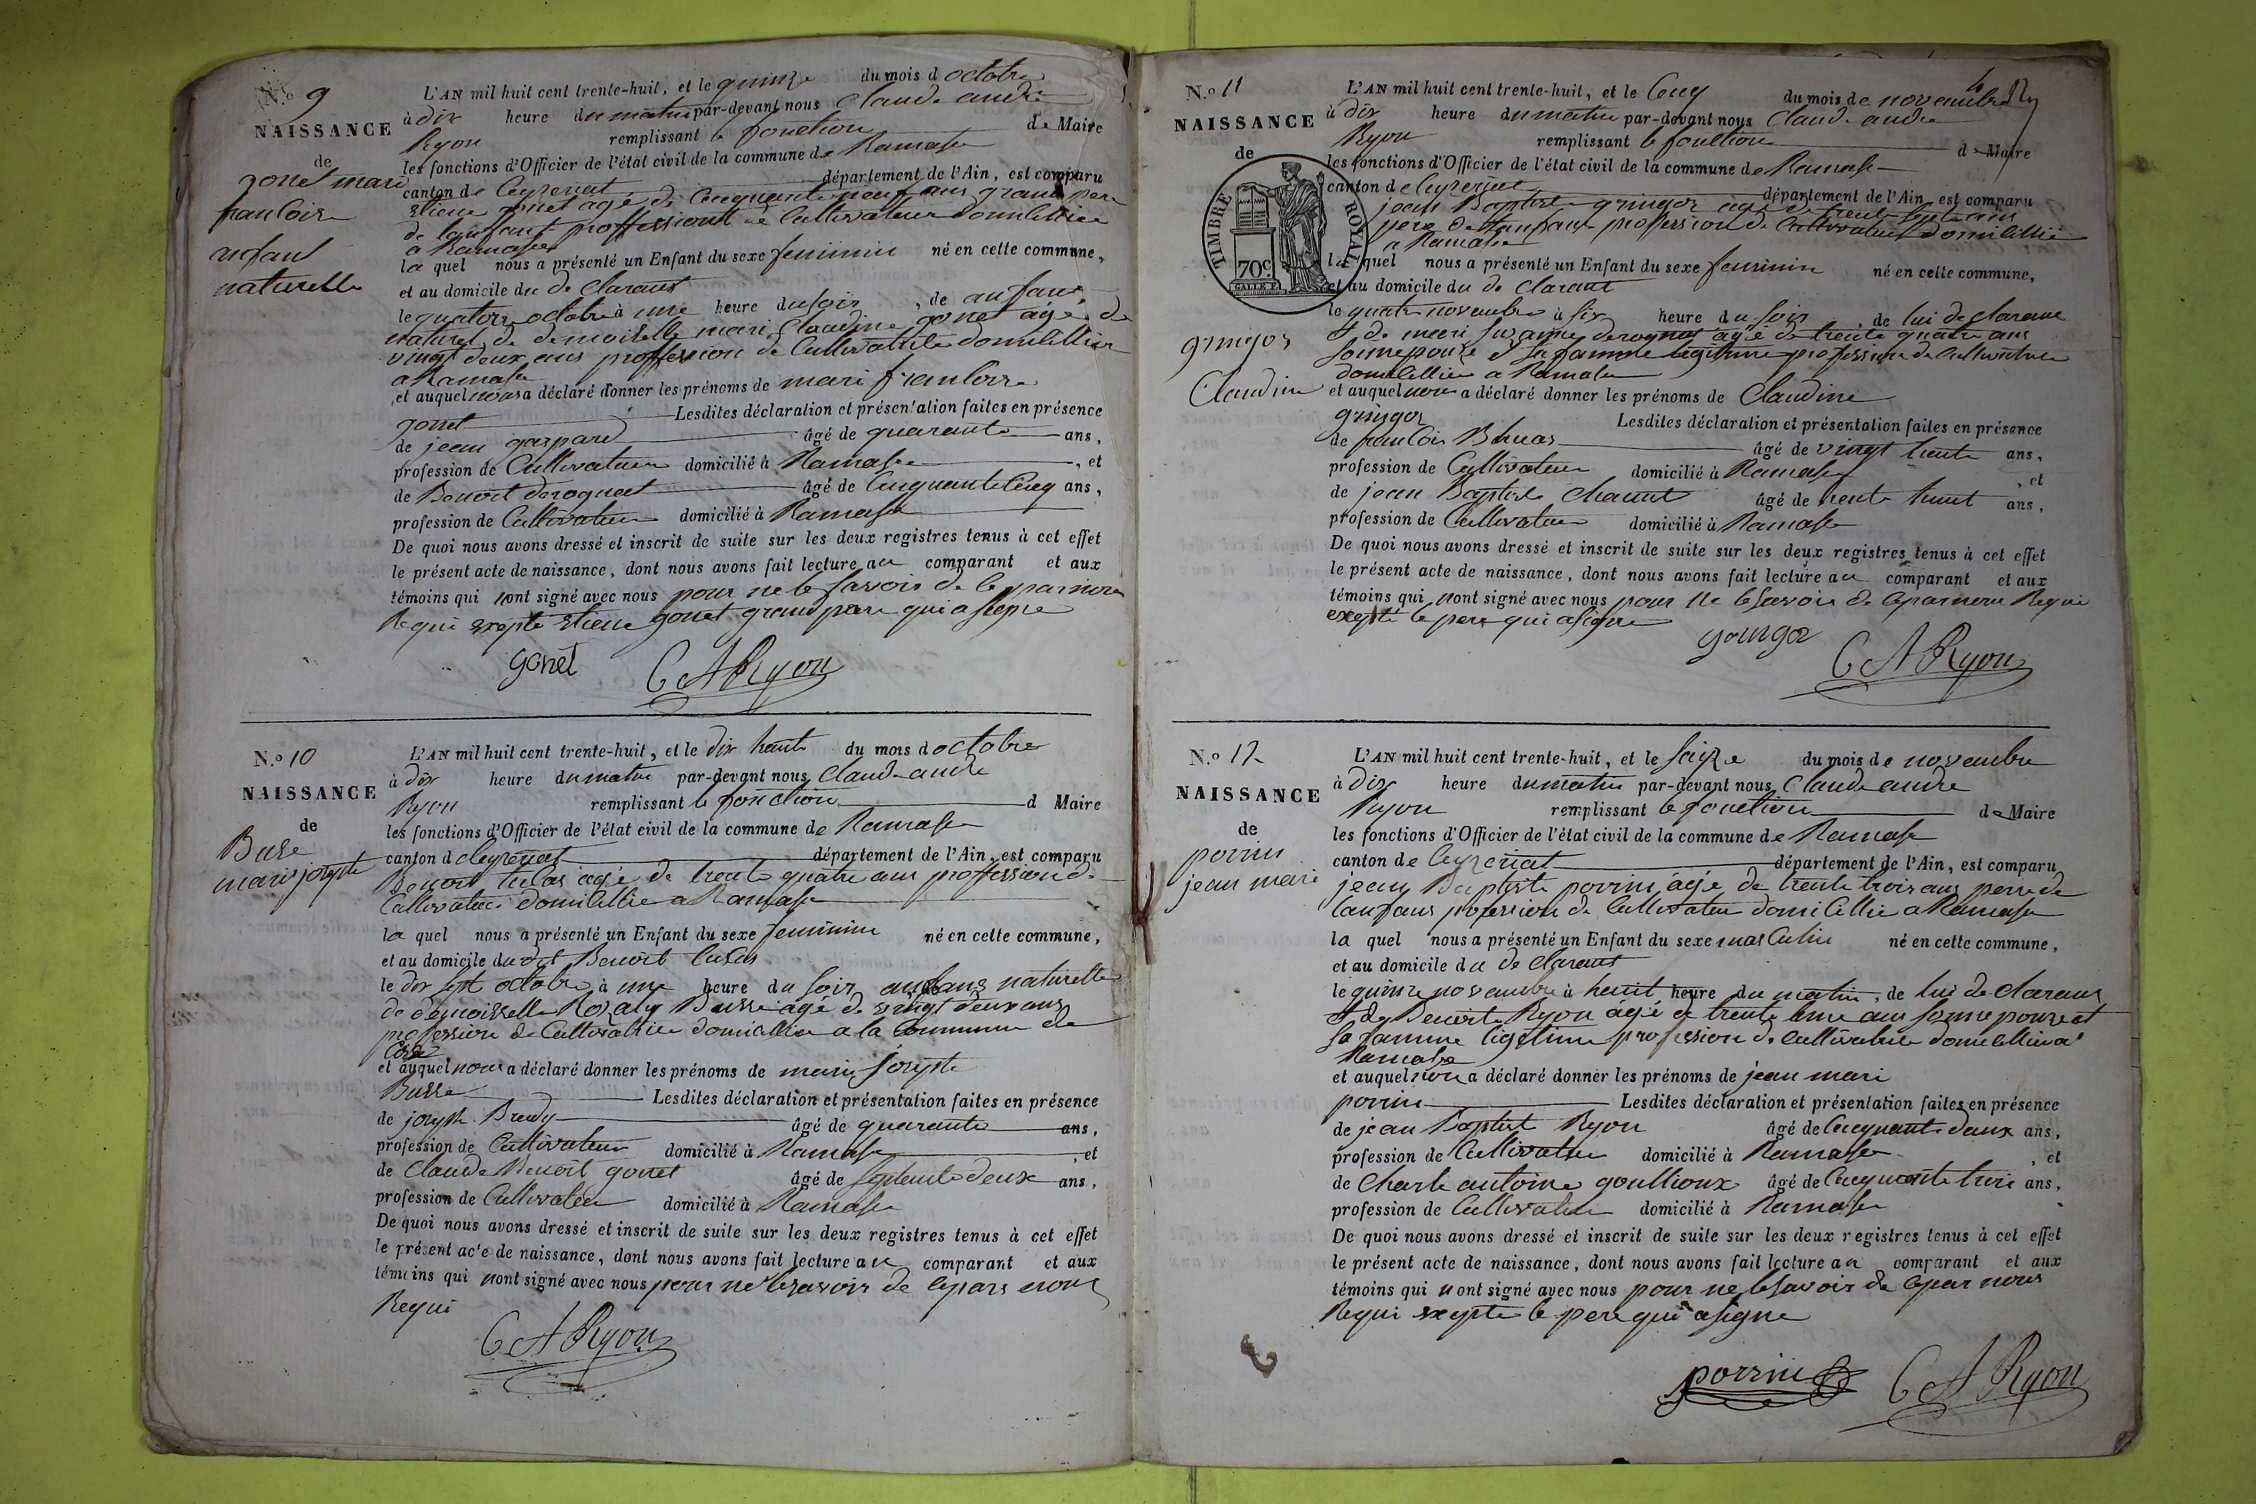 N.o 9
NAISSANCE
de
gonet mari
francoise
anfant
naturelle
L'AN mil huit cent trente-huit, et le quinze du mois d octobre
à dix heure du matin par-devant nous Claude andré
Ryon remplissant le fonction de Maire
les fonctions d'Officier de l'état civil de la commune de Ramasse
canton de Ceyzeriat département de l'Ain, est comparu
etiene gonet agé de cinquante neuf ans grand pere
de lanfant proffession de Cultivateur domicillié
a Ramasse
la quel nous a présenté un Enfant du sexe feminin né en cette commune,
et au domicile du de Clarant
le quatorze octobre à une heure du soir, de anfant
naturel de demoiselle mari Claudine gonet agé de
vingt deux ans proffession de Cultivatrice domicillier
a Ramasse
et auquel nous a déclaré donner les prénoms de mari francoise
gonet Lesdites déclaration et présentation faites en présence
de jean gaspard âgé de quarante ans,
profession de Cultivateur domicilié à Ramasse, et
de Benoit derognat âgé de cinquante cinq ans,
profession de Cultivateur domicilié à Ramasse
De quoi nous avons dressé et inscrit de suite sur les deux registres tenus à cet effet
le présent acte de naissance, dont nous avons fait lecture au comparant et aux
témoins qui nont signé avec nous pour ne le savoir de ce par nous
Requi exepté etiene gonet grand pere qui a signe
gonet C A Ryon
N.o 10
NAISSANCE
de
Busse
marie josephte
L'AN mil huit cent trente-huit, et le dix huite du mois d octobre
à dix heure du matin par-devant nous Claude andre
Ryon remplissant le fonction d Maire
les fonctions d'Officier de l'état civil de la commune de Ramasse
canton d Ceyzeriat département de l'Ain, est comparu
Benoit lucas agé de trente quatre ans proffession de
Cultivateur domicillié a Ramasse
la quel nous a présenté un Enfant du sexe feminin né en cette commune,
et au domicile du dit Benoit lucas
le dix sept octobre à une heure du soir anfant naturelle
de demoiselle Rosaly Busse agé de vingt deux ans
profession de Cultivatrice domicillier a la Commune de
et auquel nous a déclaré donner les prénoms de marie josephte
Busse Lesdites déclaration et présentation faites en présence
de joseph Bredy âgé de quarante ans,
profession de Cultivateur domicilié à Ramasse, et
de Claude Benoit gonet âgé de septente deux ans,
profession de Cultivateur domicilié à Ramasse
De quoi nous avons dressé et inscrit de suite sur les deux registres tenus à cet effet
le présent acte de naissance, dont nous avons fait lecture au comparant et aux
témoins qui nont signé avec nous pour ne le savoir de ce par nous
Requi
C A Ryon
N.o 11
NAISSANCE
de
TIMBRE ROYAL
70 c.
gringoz
Claudine
L'AN mil huit cent trente-huit, et le Cinq du mois de novembre
à dix heure du matin par-devant nous Claude andre
Ryon remplissant le fonction de Maire
les fonctions d'Officier de l'état civil de la commune de Ramasse
canton de Ceyzeriat département de l'Ain, est comparu
jean Baptiste gringoz agé de trente sept ans
pere de lanfant profession de Cultivateur domicillié
a Ramasse
la quel nous a présenté un Enfant du sexe feminin né en cette commune,
et au domicile du de Clarant
le quatre novembre à six heure du soir, de lui de clarant
et de mari Suzanne derognat agé de trente quatre ans
son nepouze et sa famme legitime profession de Cultivatrice
domicillier a Ramasse
et auquel nous a déclaré donner les prénoms de Claudine
gringoz Lesdites déclaration et présentation faites en présence
de francois Buras âgé de vingt huite ans,
profession de Cultivateur domicilié à Ramasse, et
de jean Baptiste Chanut âgé de trente huit ans,
profession de Cultivateur domicilié à Ramasse
De quoi nous avons dressé et inscrit de suite sur les deux registres tenus à cet effet
le présent acte de naissance, dont nous avons fait lecture au comparant et aux
témoins qui nont signé avec nous pour ne le savoir de ce par nous Requi
exepté le pere qui a signe
gringoz C A Ryon
N.o 12
NAISSANCE
de
porrin
jean mari
L'AN mil huit cent trente-huit, et le saize du mois de novembre
à dix heure du matin par-devant nous Claude andre
Ryon remplissant le fonction de Maire
les fonctions d'Officier de l'état civil de la commune de Ramasse
canton de Ceyzeriat département de l'Ain, est comparu
jean Baptiste porrin agé de trente trois ans perre de
lanfant profession de Cultivateur domicillié a Ramasse
la quel nous a présenté un Enfant du sexe masculin né en cette commune,
et au domicile du de Clarant
le quinze novembre à huit heure du matin, de lui de Clarant
et de Benoite Ryon agé de trente une ans son nepouze et
sa famme ligitime profession de Cultivatrice domicillier a
Ramasse
et auquel nous a déclaré donner les prénoms de jean mari
porrin Lesdites déclaration et présentation faites en présence
de jean Baptiste Ryon âgé de cinquante deux ans,
profession de Cultivateur domicilié à Ramasse, et
de Charle antoine goullioux âgé de cinquante trois ans,
profession de Cultivateur domicilié à Ramasse
De quoi nous avons dressé et inscrit de suite sur les deux registres tenus à cet effet
le présent acte de naissance, dont nous avons fait lecture au comparant et aux
témoins qui nont signé avec nous pour ne le savoir de ce par nous
Requi exepté le pere qui a signe
porrin C A Ryon